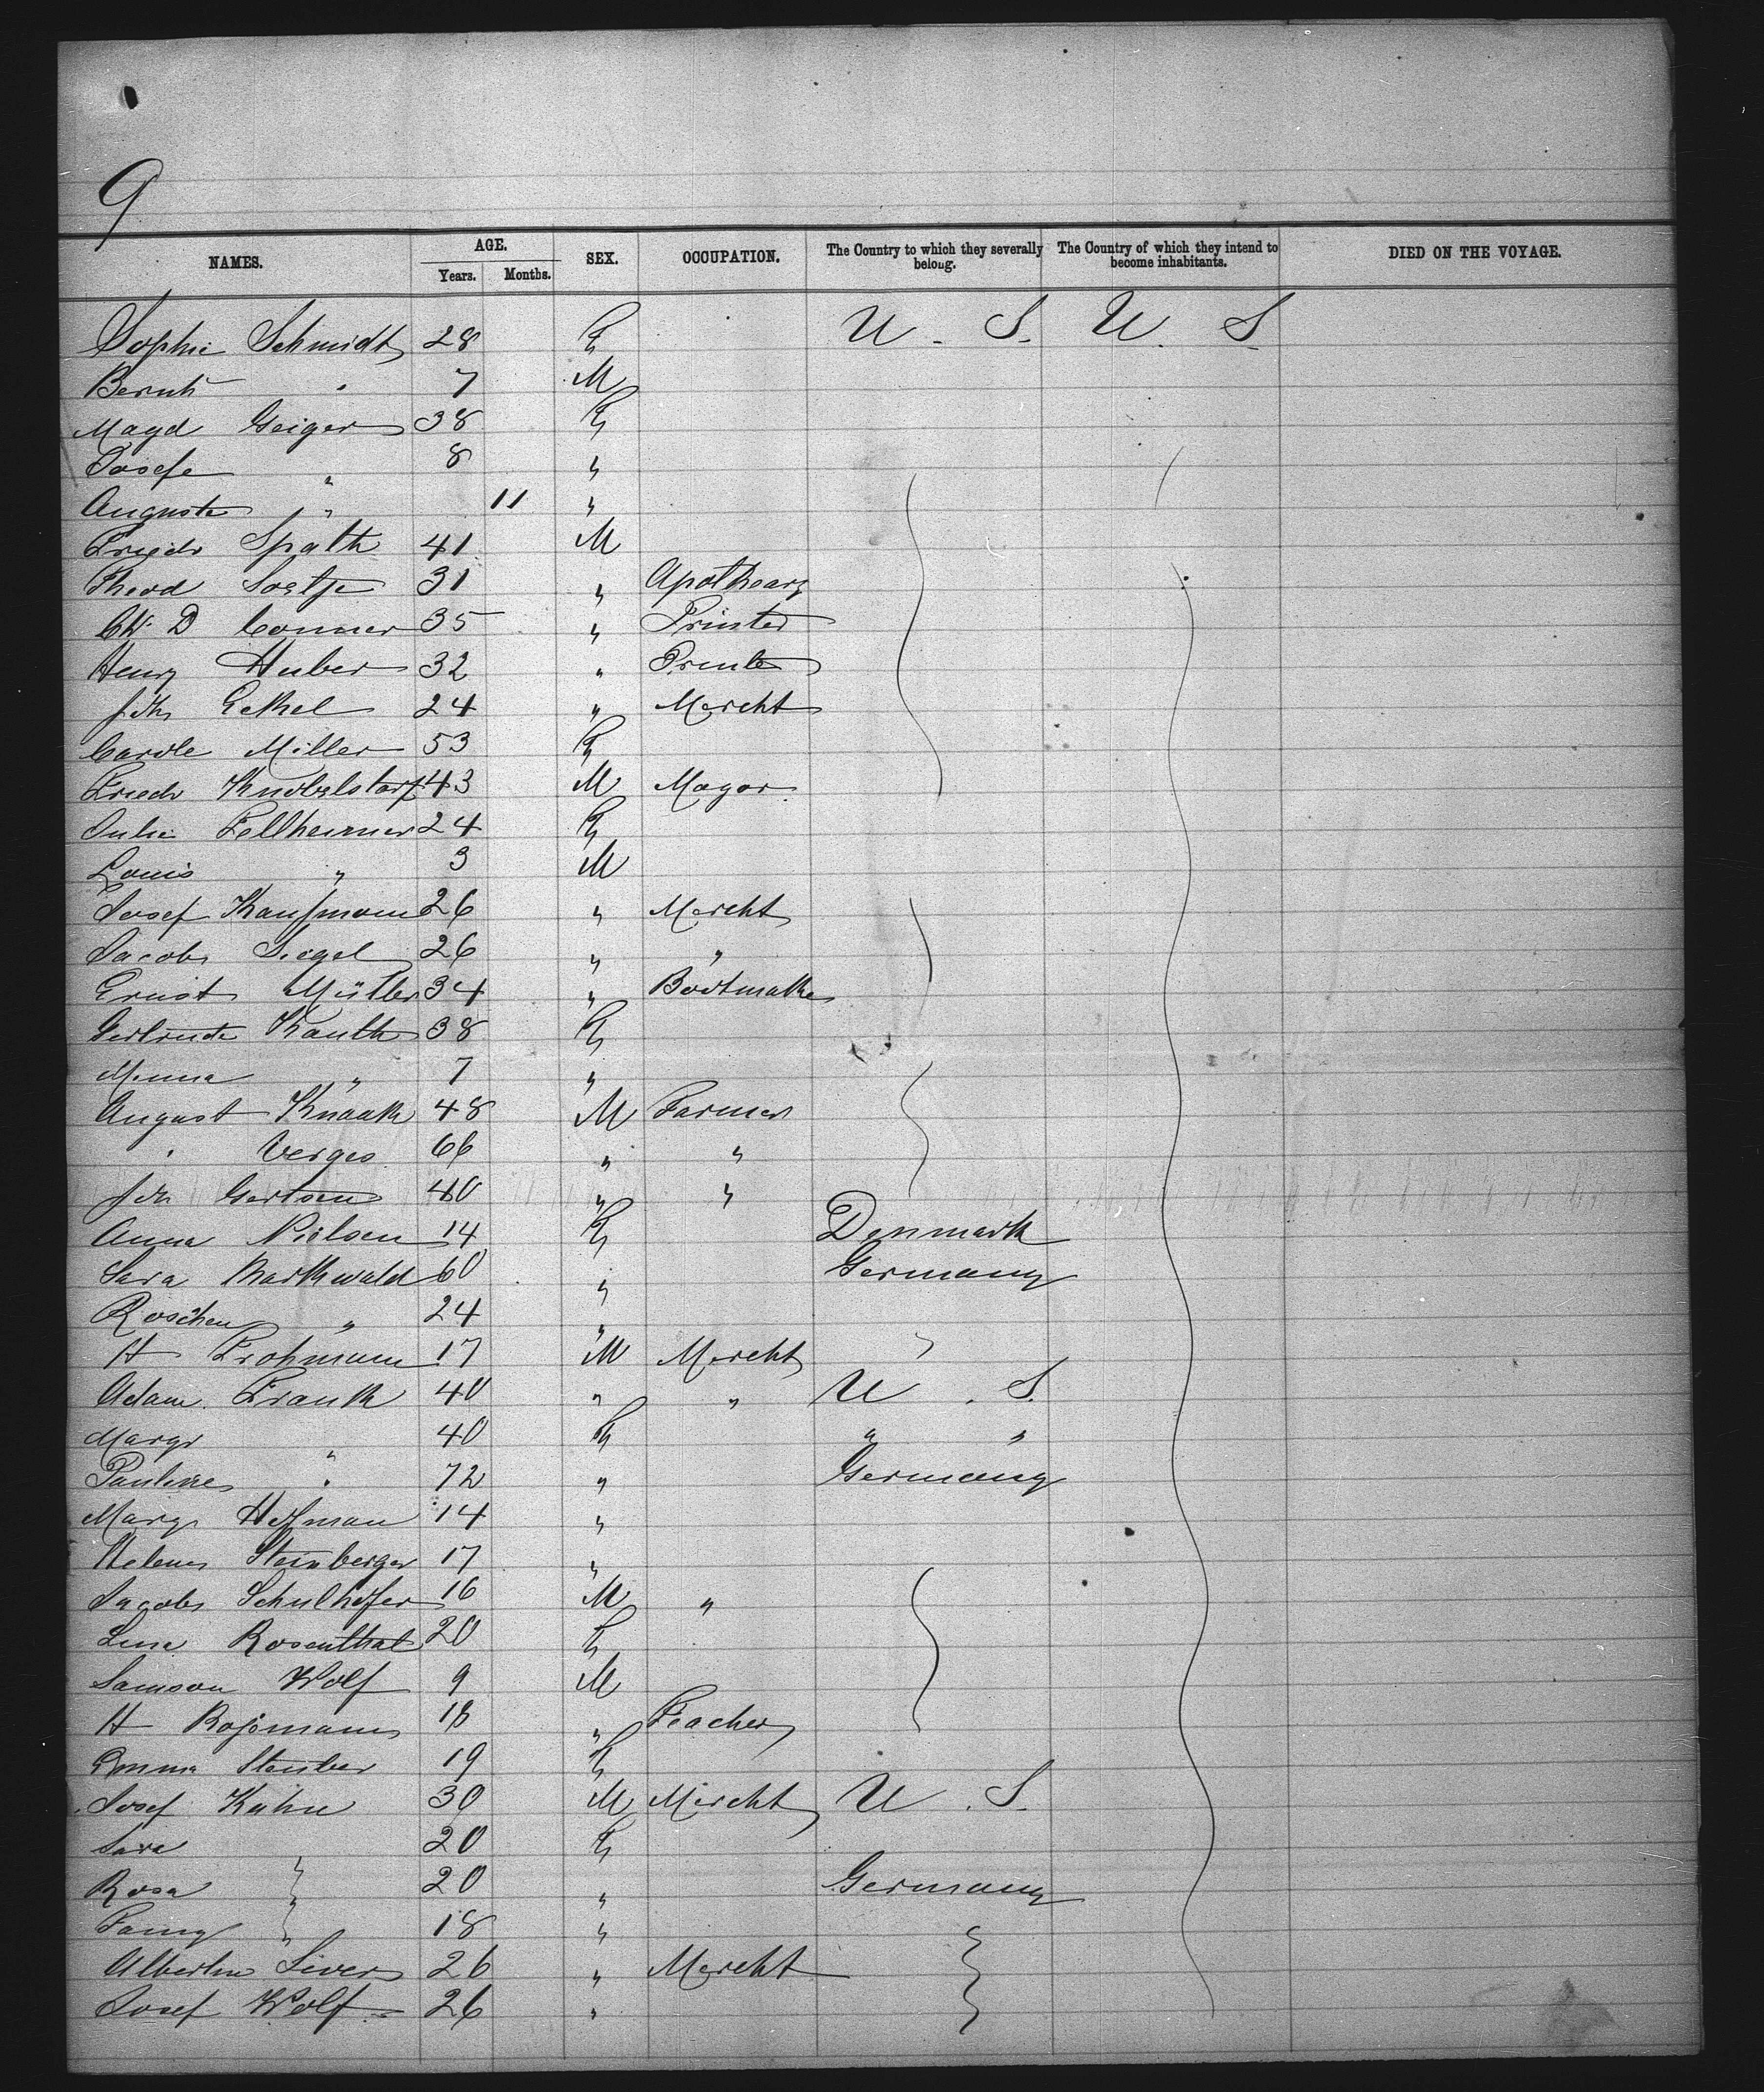 9
NAMES. AGE. Years. Months. SEX. OCCUPATION. The Country to which they severally belong. The Country of which they intend to become inhabitants. DIED ON THE VOYAGE.
Sophie Schmidt 28 F U. S. U. S.
Bernh " 7 M
Magd Geiger 38 F
Josefe " 8 "
Auguste " 11 "
Friedr Spath 41 M
Theod 31 " Apothecary
D Conner 35 " Printer
Henry Huber 32 " Printer
Joh Eckel 24 " Mercht
Carole Miller 53 F
Friedr Knobelstorf 43 M Mayor
Julie Fellheimer 24 F
Louis " 3 M
Josef Kaufmann 26 " Mercht
Jacob Siegel 26 " "
Ernst Müller 34 " Bootmaker
Gertrude Kauth 38 F
Minna " 7 "
August Knaak 48 M Farmer
" Verges 66 " "
Joh Gertsen 40 " "
Anna Nielsen 14 F Denmark
Sara Markwald 60 " Germany
Roschen " 24 "
H Frohmann 17 M Mercht "
Adam Frank 40 " " U. S.
Margr " 40 F " "
Pauline " 72 " Germany
Margr Hofman 14 "
Helene Steinberger 17 "
Jacob Schulhöfer 16 M "
Lina Rosenthal 20 F
Samson Wolf 9 M
H Rossmann 18 " Teacher
Emma Steuber 19 F
Josef Kahn 30 M Mercht U. S.
Sara " 20 F
Rosa " 20 " Germany
Fanny " 18 "
Albertine Sivers 26 " Mercht
Josef Wolf 26 "